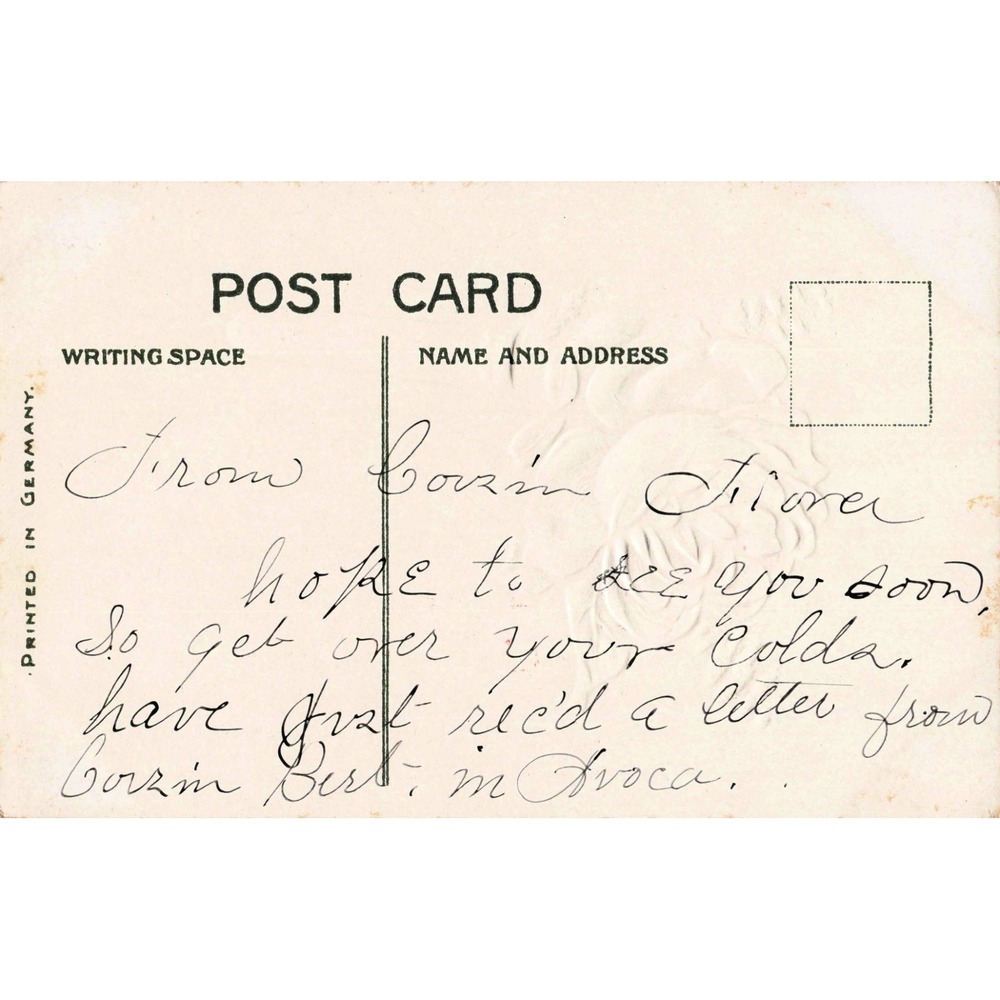 POST CARD
WRITING SPACE
NAME AND ADDRESS
PRINTED IN GERMANY.
From Cousin
hope to see you soon,
So get over your Colds.
have Just rec'd a letter from
Cousin Bert. in Avoca.